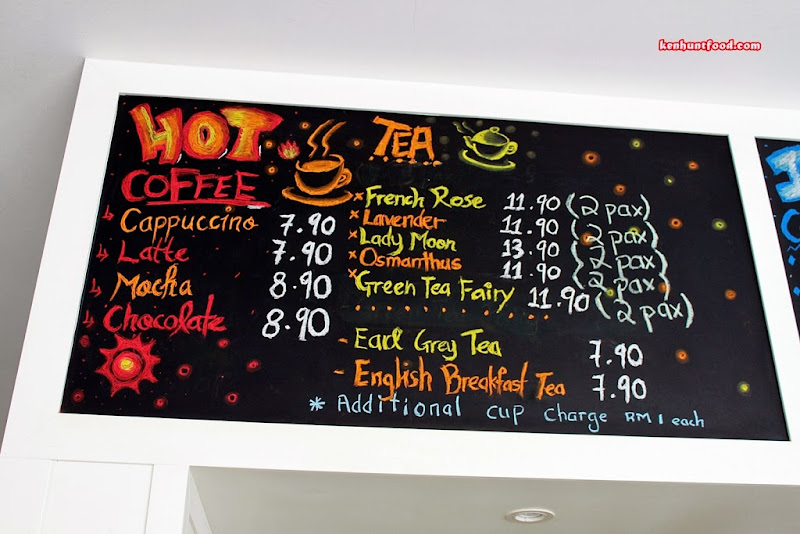 kenhuntfood.com
HOT
COFFEE
Cappuccino 7.90
Latte 7.90
Mocha 8.90
Chocolate 8.90
TEA
× French Rose 11.90 (2 pax)
× Lavender 11.90 (2 pax)
Lady Moon 13.90 (2 pax)
× Osmanthus 11.90 (2 pax)
× Green Tea Fairy 11.90 (2 pax)
- Earl Grey Tea 7.90
- English Breakfast Tea 7.90
* Additional cup charge RM 1 each